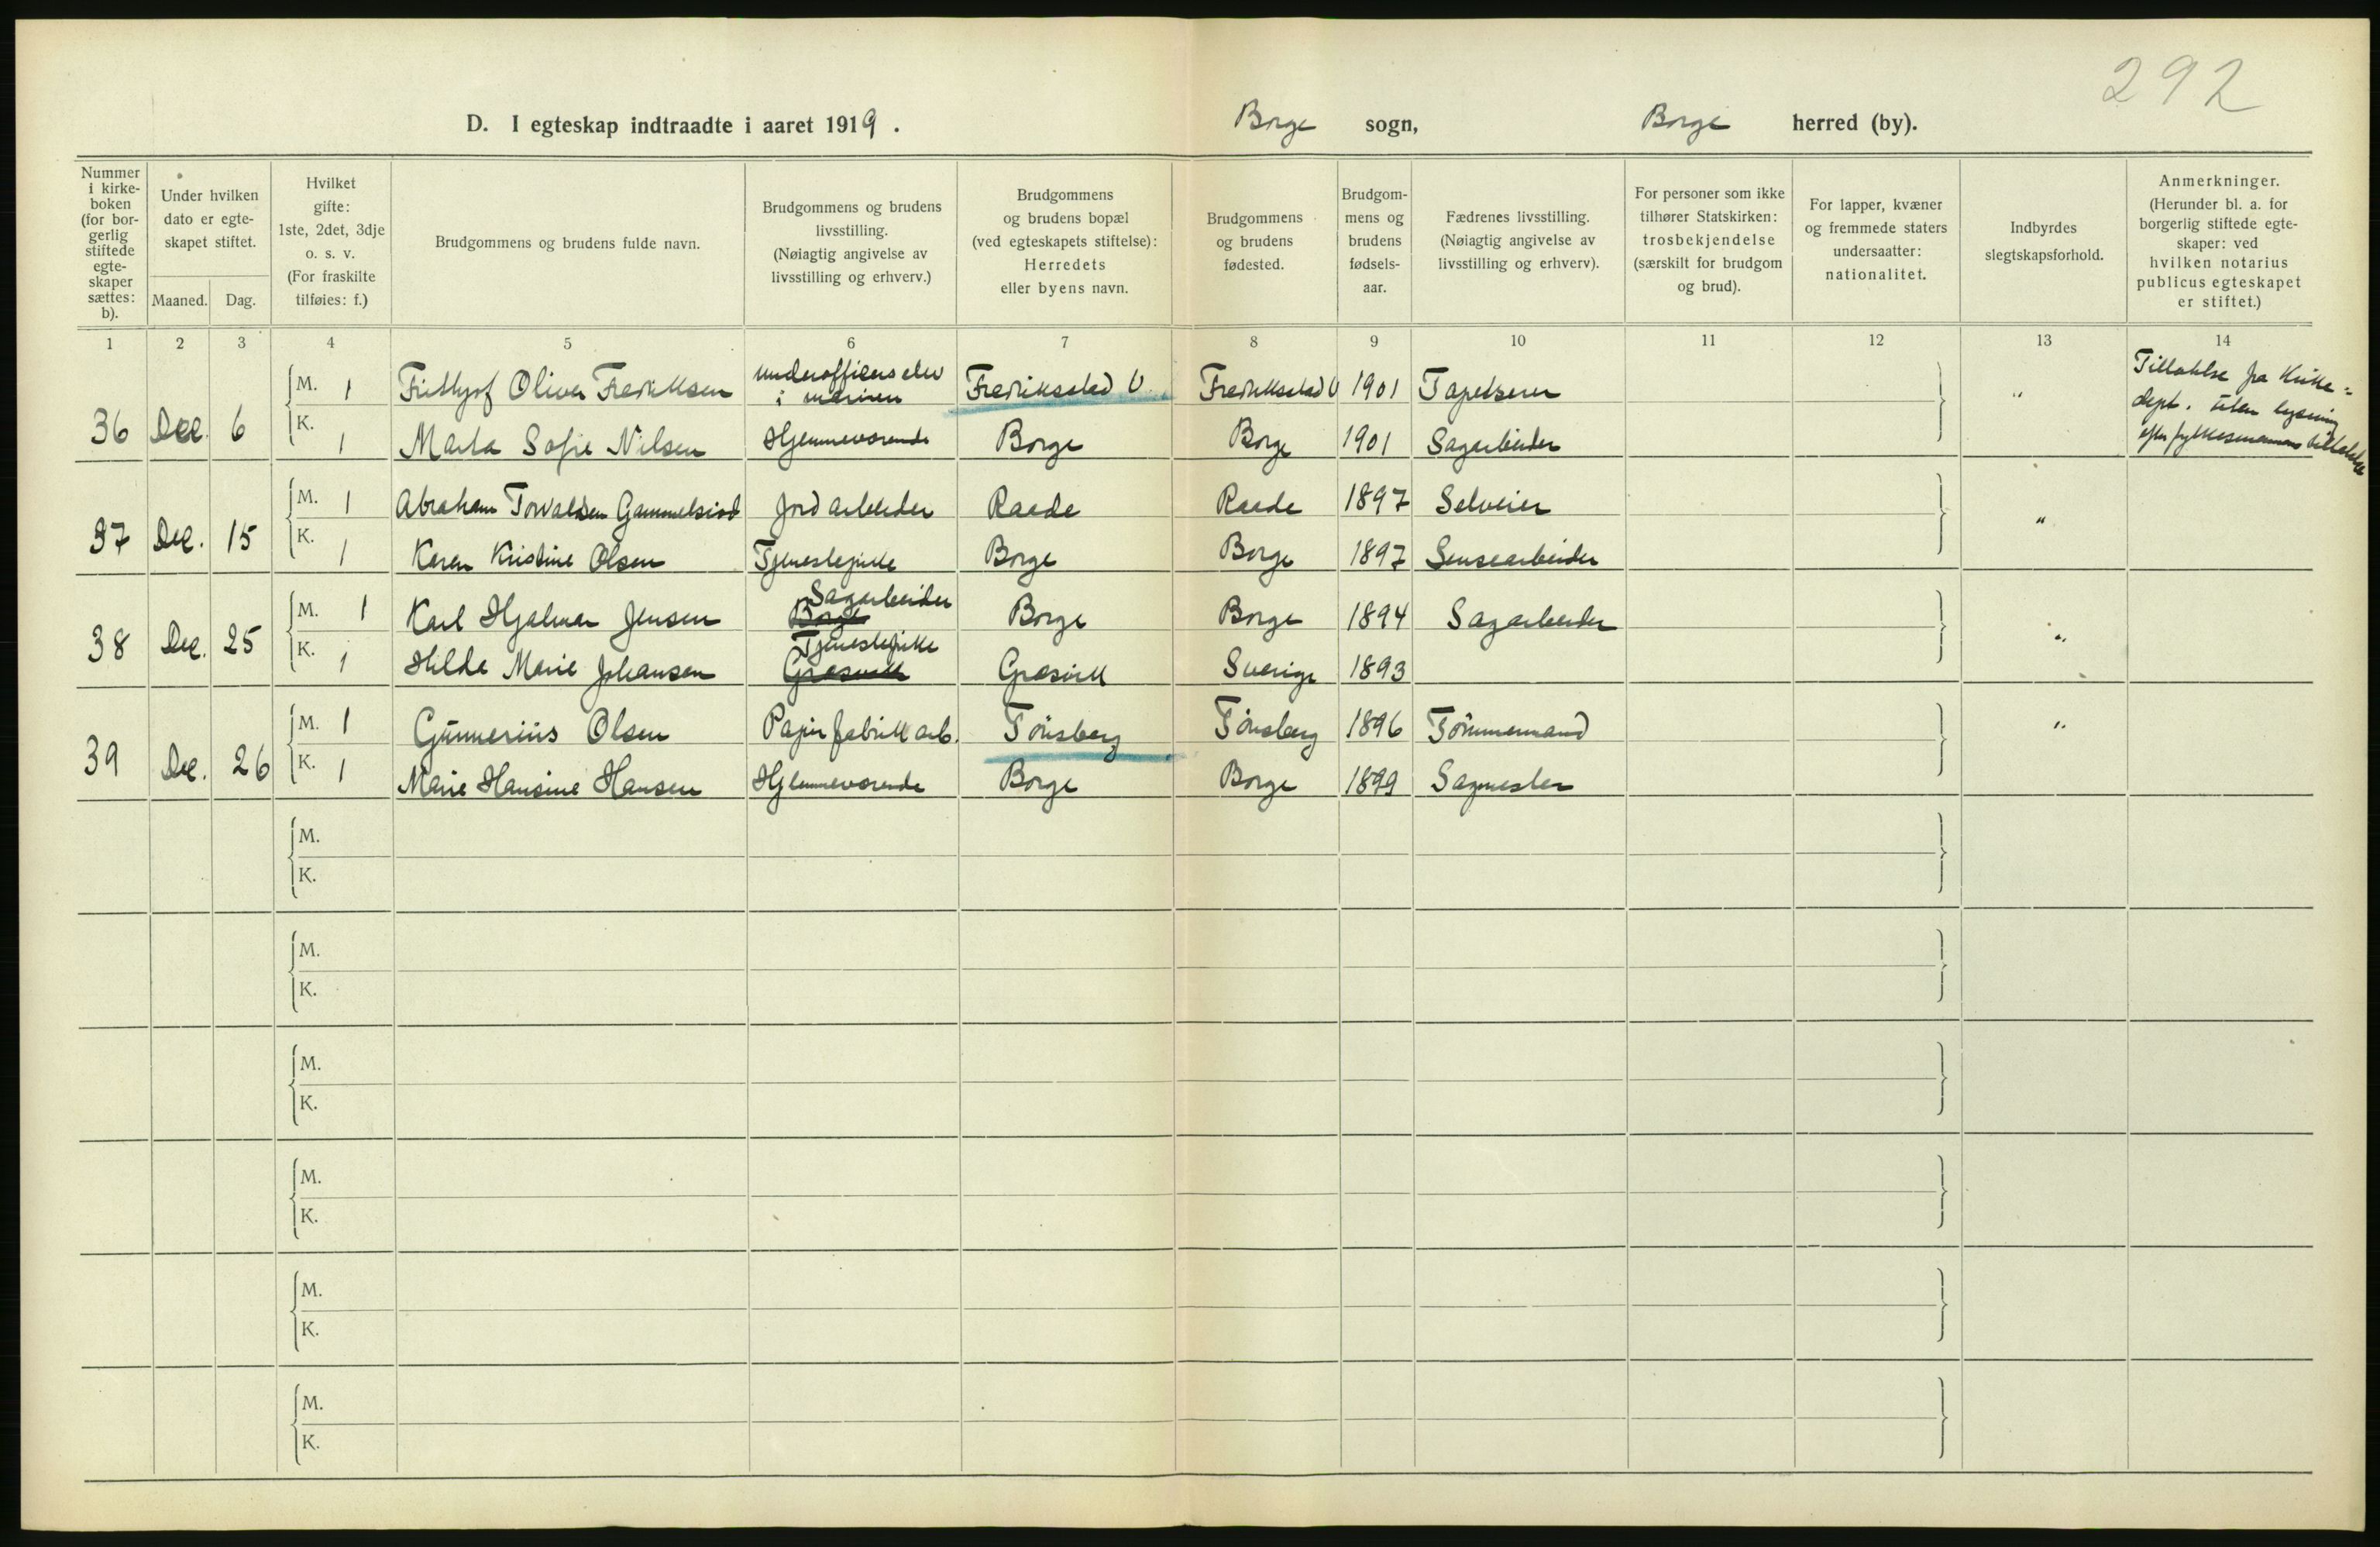 292
D. I egteskap indtraadte i aaret 1919. Borge sogn, Borge herred (by).
Nummer i kirke- boken (for bor- gerlig stiftede egte- skaper sættes: b).
Under hvilken dato er egte- skapet stiftet.
Maaned. Dag.
Hvilket gifte: 1ste, 2det, 3dje o. s. v. (For fraskilte tilføies: f.)
Brudgommens og brudens fulde navn.
Brudgommens og brudens livsstilling. (Nøiagtig angivelse av livsstilling og erhverv.)
Brudgommens og brudens bopæl (ved egteskapets stiftelse): Herredets eller byens navn.
Brudgommens og brudens fødested.
Brudgom- mens og brudens fødsels- aar.
Fædrenes livsstilling. (Nøiagtig angivelse av livsstilling og erhverv).
For personer som ikke tilhører Statskirken: trosbekjendelse (særskilt for brudgom og brud).
For lapper, kvæner og fremmede staters undersaatter: nationalitet.
Indbyrdes slegtskapsforhold.
Anmerkninger. (Herunder bl. a. for borgerlig stiftede egte- skaper: ved hvilken notarius publicus egteskapet er stiftet.)
1 2 3 4 5 6 7 8 9 10 11 12 13 14
36 Dec. 6 M. 1 Frithjof Oliver Fredriksen underofficerselev i marinen Fredrikstad V. Fredrikstad V 1901 Tapetserer " Tillatelse fra Kirke= dept. uten lysning efter fylkesmannens tillatelse
K. 1 Marta Sofie Nilsen Hjemmeværende Borge Borge 1901 Sagarbeider
37 Dec. 15 M. 1 Abraham Torvaldsen Gammelsrød Jordarbeider Raade Raade 1897 Selveier "
K. 1 Karen Kristine Olsen Tjenestepike Borge Borge 1897 Lensearbeider
38 Dec. 25 M. 1 Karl Hjalmar Jensen Borge Sagarbeider Borge Borge 1894 Sagarbeider "
K. 1 Hilda Marie Johansen Græsvik Tjenestepike Græsvik Sverige 1893
39 Dec. 26 M. 1 Gunnerius Olsen Papirfabrikarb. Tønsberg Tønsberg 1896 Tømmermand "
K. 1 Marie Hansine Hansen Hjemmeværende Borge Borge 1899 Sagmester
M.
K.
M.
K.
M.
K.
M.
K.
M.
K.
M.
K.